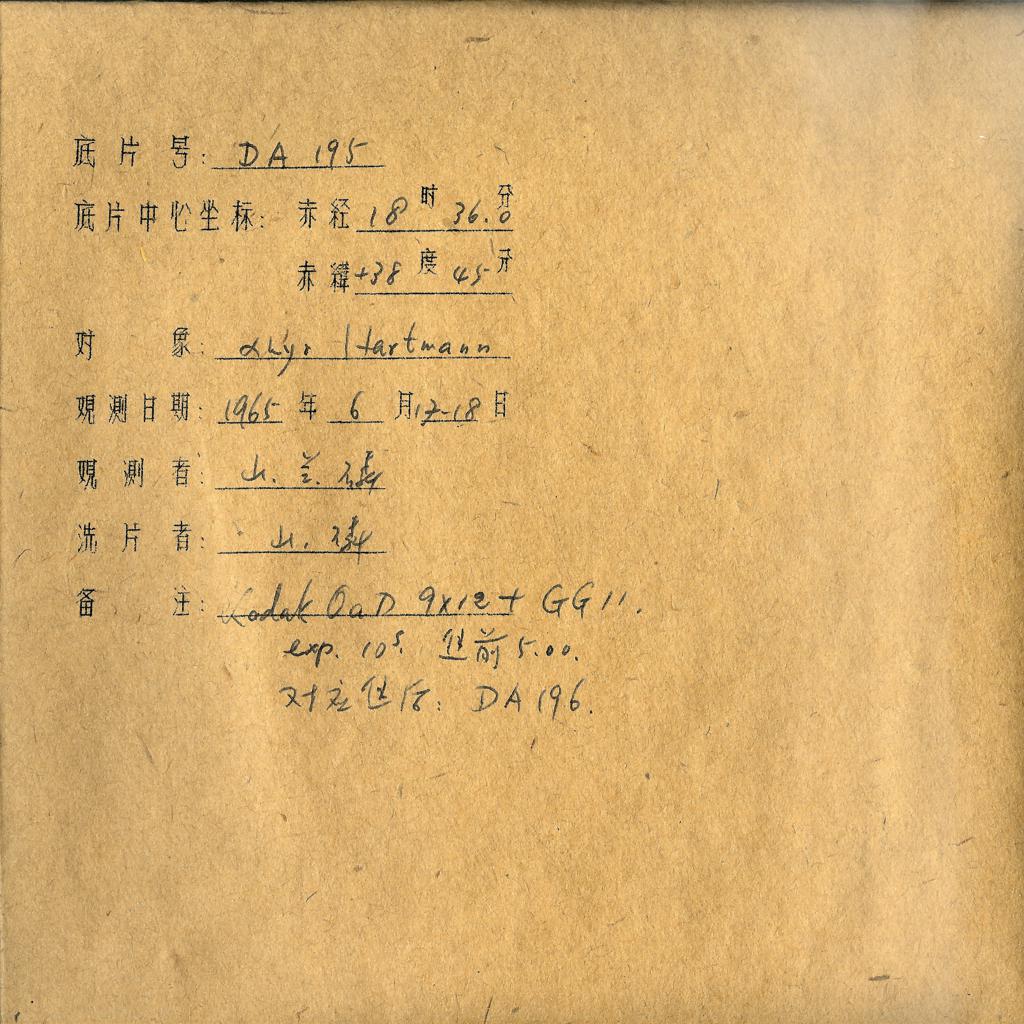 底片号: DA 195
底片中心坐标: 赤经 18 时 36.0 分
赤纬 +38 度 45 分
对象: αLyr Hartmann
观测日期: 1965 年 6 月 17-18 日
观测者: 山. 兰.
洗片者: 山.
备注: Kodak OaD 9x12 + GG11.
exp. 10s. 焦前 5.00.
对应焦后: DA 196.